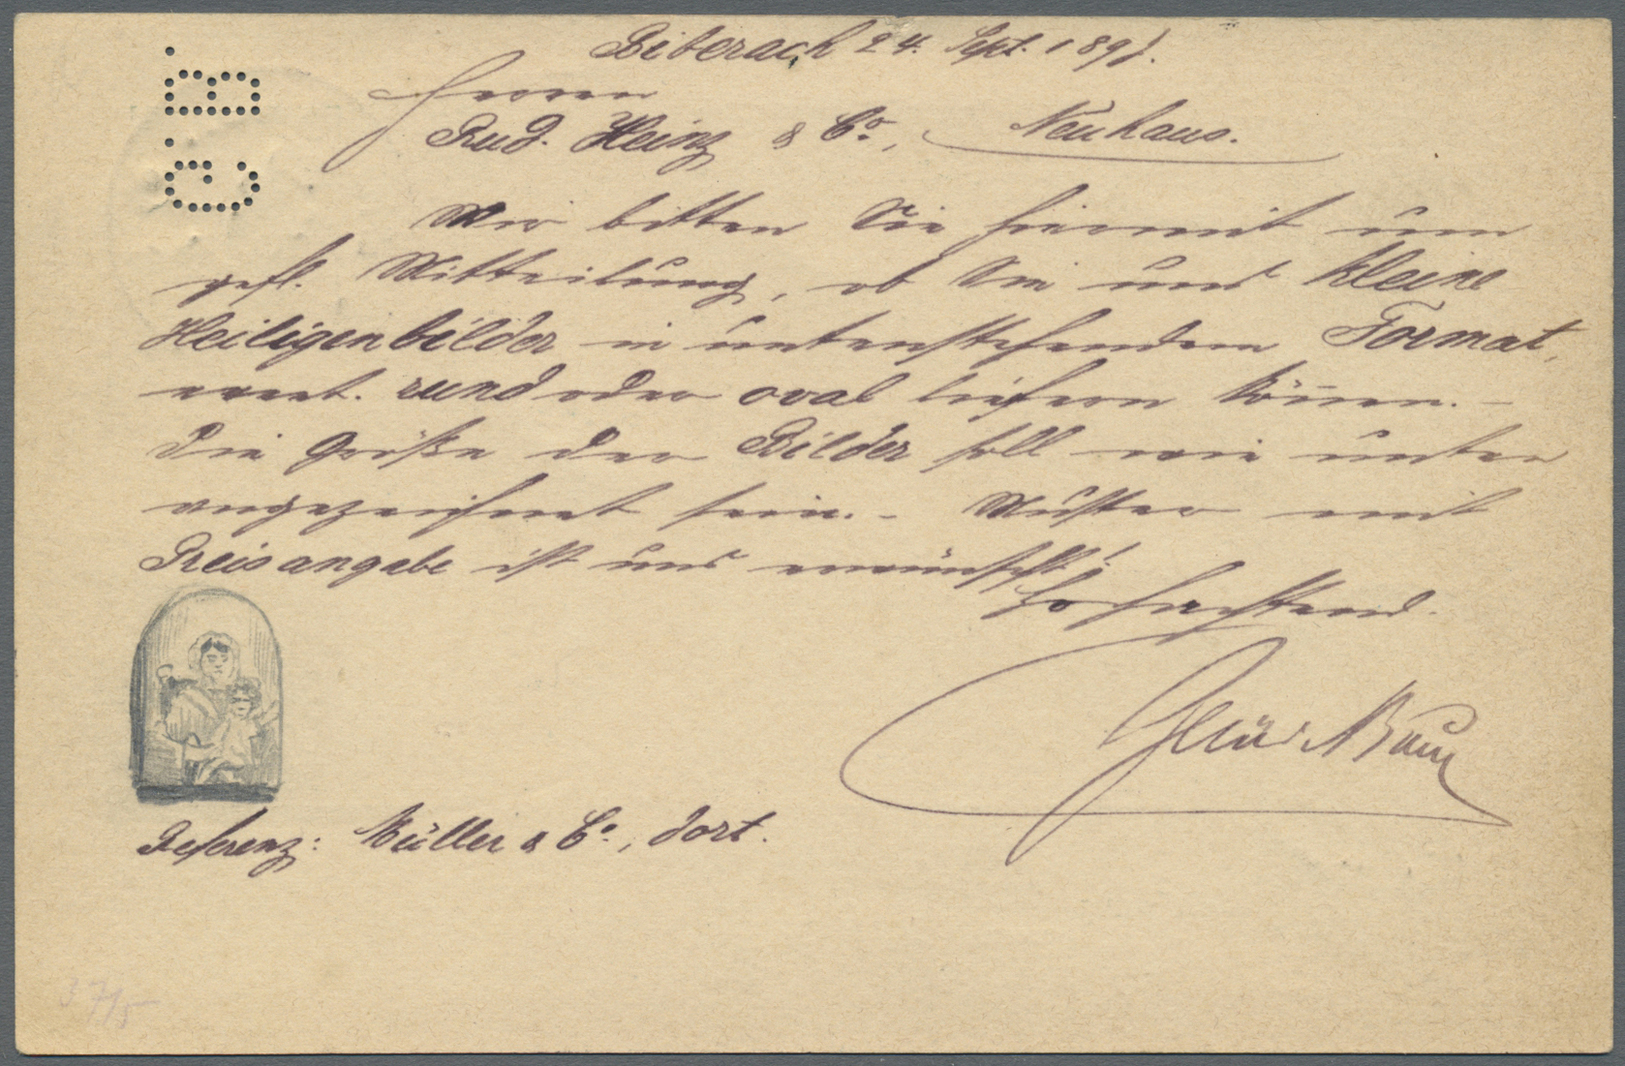 Biberach 24. Sept. 1891.
Herren
Rud. Heinz & Co., Neuhaus.
Wir bitten Sie hiermit um
gefl. Mitteilung, ob Sie uns kleine
Heiligenbilder in untenstehendem Format,
event. rund oder oval liefern können. –
Die Größe der Bilder soll wie unten
angezeichnet sein. – Muster mit
Preisangabe ist uns erwünscht!
Hochachtend
Referenz: Müller & Co., dort.
G.B.
37/5